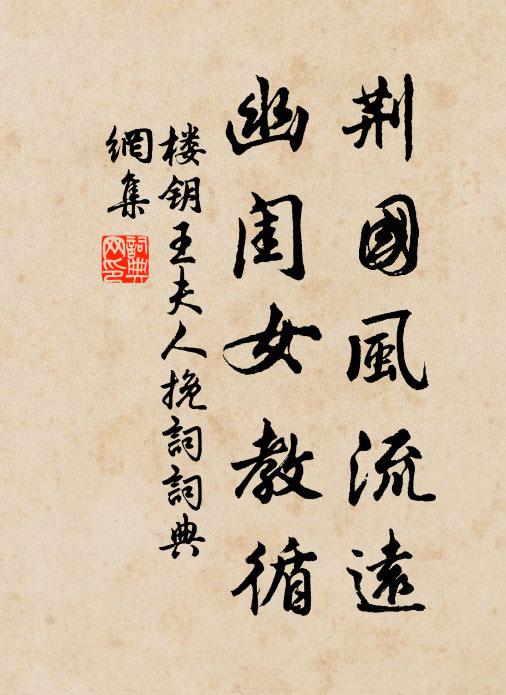 荆國風流遠
幽閨女教循
楼钥王夫人挽詞詞典
網集
詞典
网印